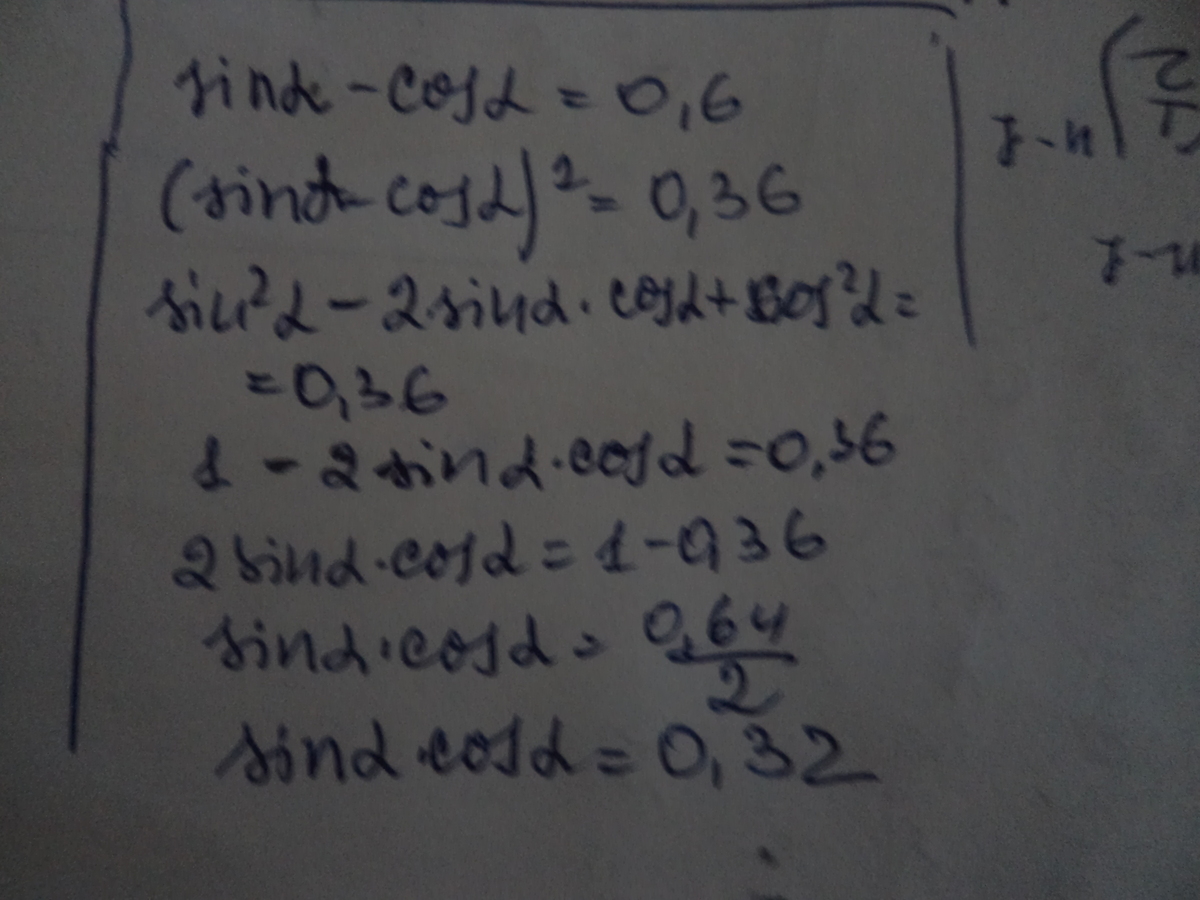 sinα - cosα = 0,6
(sinα - cosα)² = 0,36
sin²α - 2sinα · cosα + cos²α =
= 0,36
1 - 2 sinα · cosα = 0,36
2 sinα · cosα = 1 - 0,36
sinα · cosα = 0,64/2
sinα · cosα = 0,32